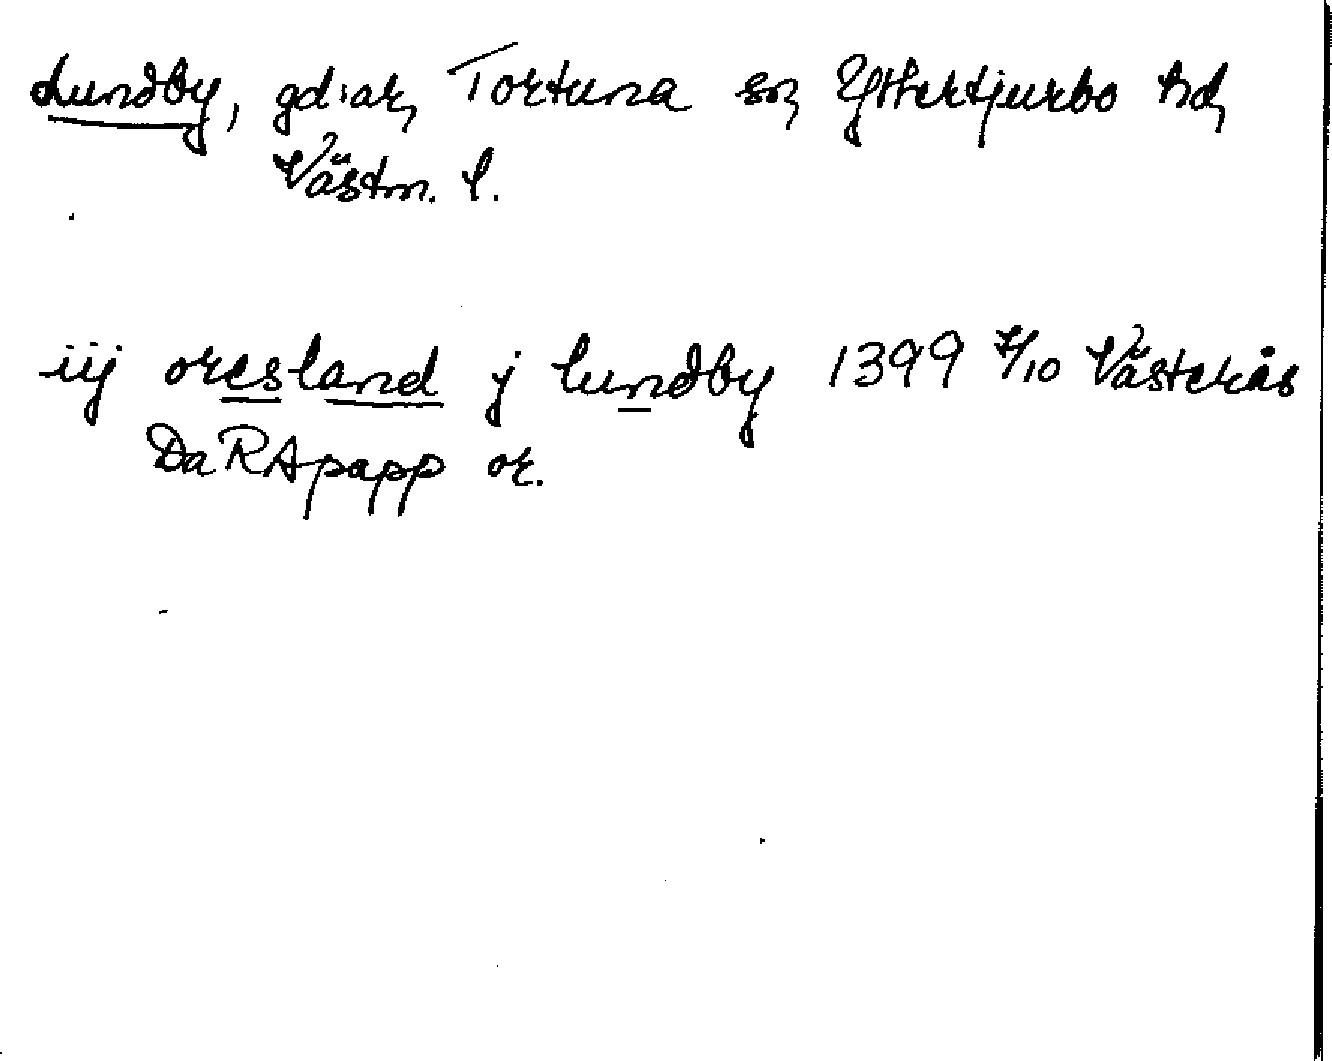 Lundby, gdiar, Tortuna sn, Yttertjurbo hd,
Västm. l.
iij oresland j lundby 1399 7/10 Västerås
DaRApapp or.